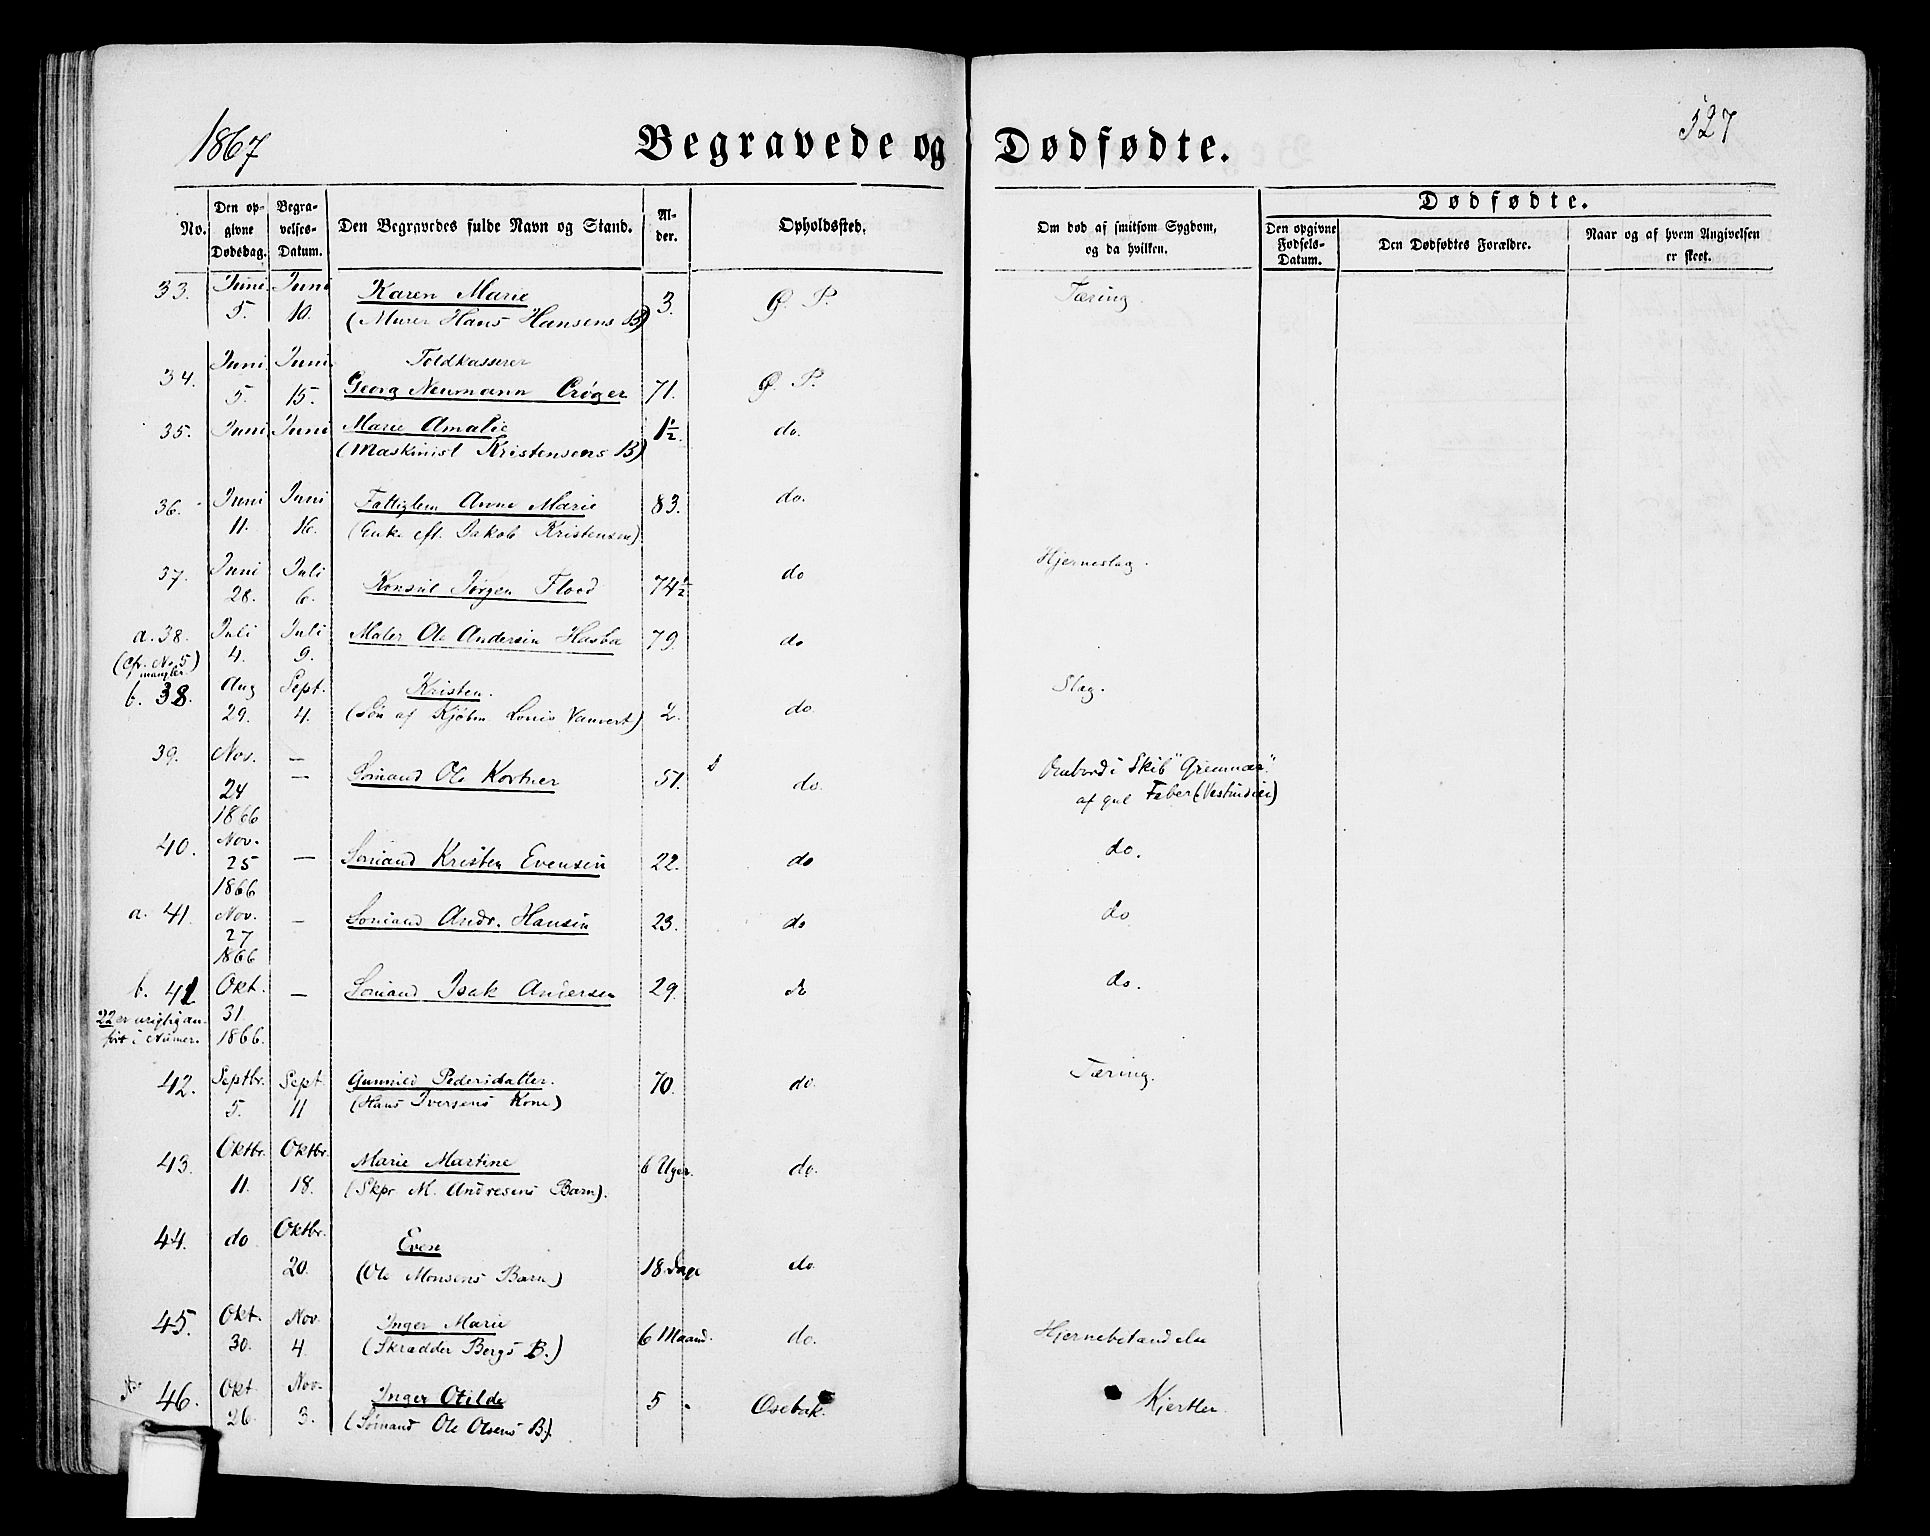 1867
Begravede og Dødfødte.
527
No.
Den opgivne Dødsdag.
Begravelses-Datum.
Den Begravedes fulde Navn og Stand.
Alder.
Opholdssted.
Om død af smitsom Sygdom, og da hvilken.
Dødfødte.
Den opgivne Fødsels-Datum.
Den Dødfødtes Forældre.
Naar og af hvem Angivelsen er skeet.
33. Juni 5. Juni 10. Karen Marie 3. Ø. P. Tæring.
(Murer Hans Hansens B)
34. Juni 5. Juni 15. Toldkasserer
Georg Neumann Crøger 71. Ø. P.
35. Juni Juni Marie Amalie 1½. do.
(Maskinist Kristensens B)
36. Juni 11. Juni 16. Fattiglem Anne Marie 83. do.
(Enke eft. Jakob Kristensen)
37. Juni 28. Juli 6. Konsul Jørgen Flood 74½ do Hjerneslag.
a. 38. Juli 4. Juli 9. Maler Ole Andersen 79. do
(Cfr. No. 5)
mangler
b. 38. Aug 29. Sept. 4. Kristen. 2. do. Slag.
(Søn af Kjøbm. Louis Vauvert)
39. Nov. 24 1866 — — Sømand Ole Kortner 51. do. Ombord i Skib "Grennæs"
af gul Feber (Vestindien)
40. Nov. 25 1866 — Sømand Kristen Evensen 22. do do.
a. 41. Nov. 27 1866 — Sømand Andr. Hansen 23. do do
b. 41 Okt. 31. 1866. — Sømand Isak Andersen 29. do do.
22 er urigtig an-
ført i Numer.
42. Septbr. 5. Sept. 11 Gunnild Pedersdatter. 70. do. Tæring.
(Hans Iversens Kone)
43. Oktbr. 11. Oktbr. 18. Marie Martine 6 Uger. do.
(Skpr M. Andresens Barn).
44. do Oktbr. 20. Even 18 Dage do
(Ole Monsens Barn)
45. Okt. 30. Nov. 4. Inger Marie 6 Maand. do. Hjernebetændelse
(Skrædder Bergs B.)
No. 46. Okt. 26. Nov. 3. Inger Otilde 5 Osebak. Kjertler.
(Sømand Ole Olsens B).